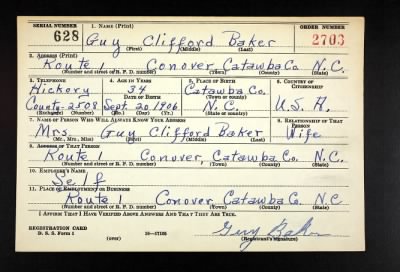 SERIAL NUMBER 1. NAME (Print) ORDER NUMBER
628 Guy Clifford Baker 2703
(First) (Middle) (Last)
2. ADDRESS (Print)
Route 1 Conover Catawba Co. N.C.
(Number and street or R. F. D. number) (Town) (County) (State)
3. TELEPHONE 4. AGE IN YEARS 5. PLACE OF BIRTH 6. COUNTRY OF CITIZENSHIP
Hickory 34 Catawba Co.
DATE OF BIRTH (Town or county)
County-2508 Sept. 20 1906 N.C. U.S.A.
(Exchange) (Number) (Mo.) (Day) (Yr.) (State or country)
7. NAME OF PERSON WHO WILL ALWAYS KNOW YOUR ADDRESS 8. RELATIONSHIP OF THAT PERSON
Mrs. Guy Clifford Baker Wife
(Mr., Mrs., Miss) (First) (Middle) (Last)
9. ADDRESS OF THAT PERSON
Route 1 Conover, Catawba Co. N.C.
(Number and street or R. F. D. number) (Town) (County) (State)
10. EMPLOYER'S NAME
Self
11. PLACE OF EMPLOYMENT OR BUSINESS
Route 1 Conover Catawba Co. N.C
(Number and street or R. F. D. number) (Town) (County) (State)
I AFFIRM THAT I HAVE VERIFIED ABOVE ANSWERS AND THAT THEY ARE TRUE.
REGISTRATION CARD Guy Baker
D. S. S. Form 1 (over) 16-17105 (Registrant's signature)